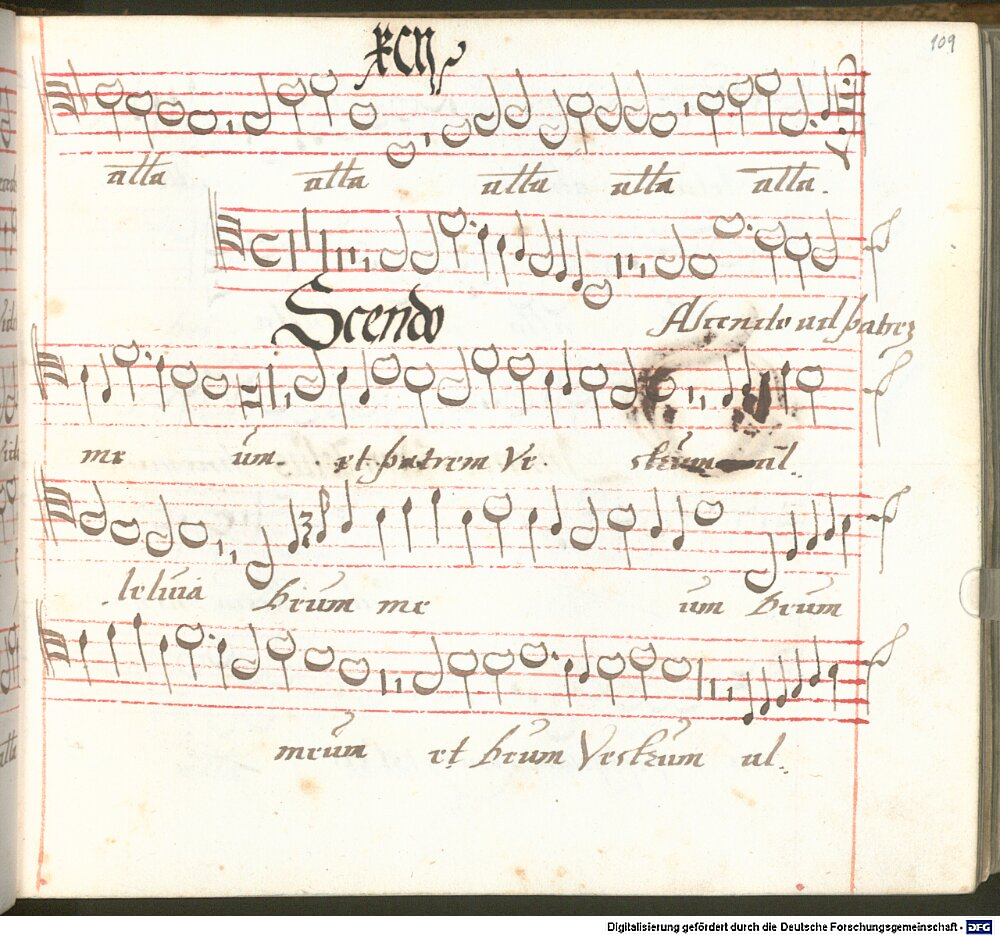 109
XCII
alla alla alla alla alla.
Scendo
Ascendo ad patrem
me um. et patrem Ve. strum al.
leluia brum me um brum
meum et brum Vestrum al.
Digitalisierung gefördert durch die Deutsche Forschungsgemeinschaft - DFG